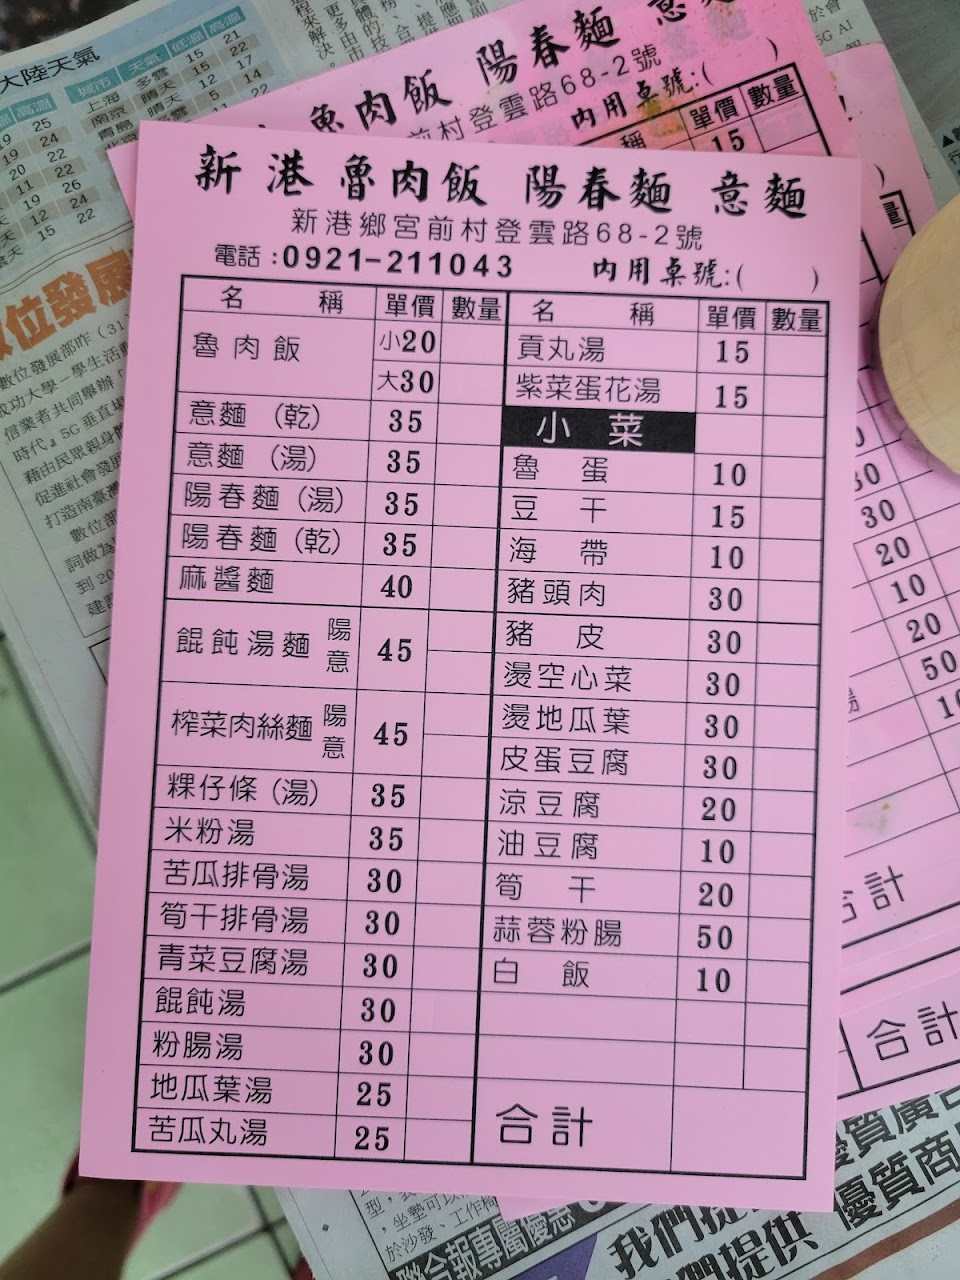 大陸天氣
城市 天氣 低溫 高溫
上海 多雲 15 21
南京 晴天 15 22
青島 晴天 12 17
魯肉飯 陽春麵 意麵
前村登雲路68-2號
內用桌號:( )
稱 單價 數量
15
新港 魯肉飯 陽春麵 意麵
新港鄉宮前村登雲路68-2號
電話:0921-211043 內用桌號:( )
名 稱 單價 數量
魯肉飯 小20
大30
意麵 (乾) 35
意麵 (湯) 35
陽春麵 (湯) 35
陽春麵 (乾) 35
麻醬麵 40
餛飩湯麵 陽 意 45
榨菜肉絲麵 陽 意 45
粿仔條 (湯) 35
米粉湯 35
苦瓜排骨湯 30
筍干排骨湯 30
青菜豆腐湯 30
餛飩湯 30
粉腸湯 30
地瓜葉湯 25
苦瓜丸湯 25
名 稱 單價 數量
貢丸湯 15
紫菜蛋花湯 15
小菜
魯蛋 10
豆干 15
海帶 10
豬頭肉 30
豬皮 30
燙空心菜 30
燙地瓜葉 30
皮蛋豆腐 30
涼豆腐 20
油豆腐 10
筍干 20
蒜蓉粉腸 50
白飯 10
合計
30
20
10
20
50
合計
合計
位發展
數位發展部昨(31
成功大學一學生活動
信業者共同舉辦
時代』5G垂直場
藉由民眾親身體
促進社會發展
打造南臺灣
數位部
詞做為
到20
聯合報專屬優惠
我們提
們提供 優質商
優質廣告